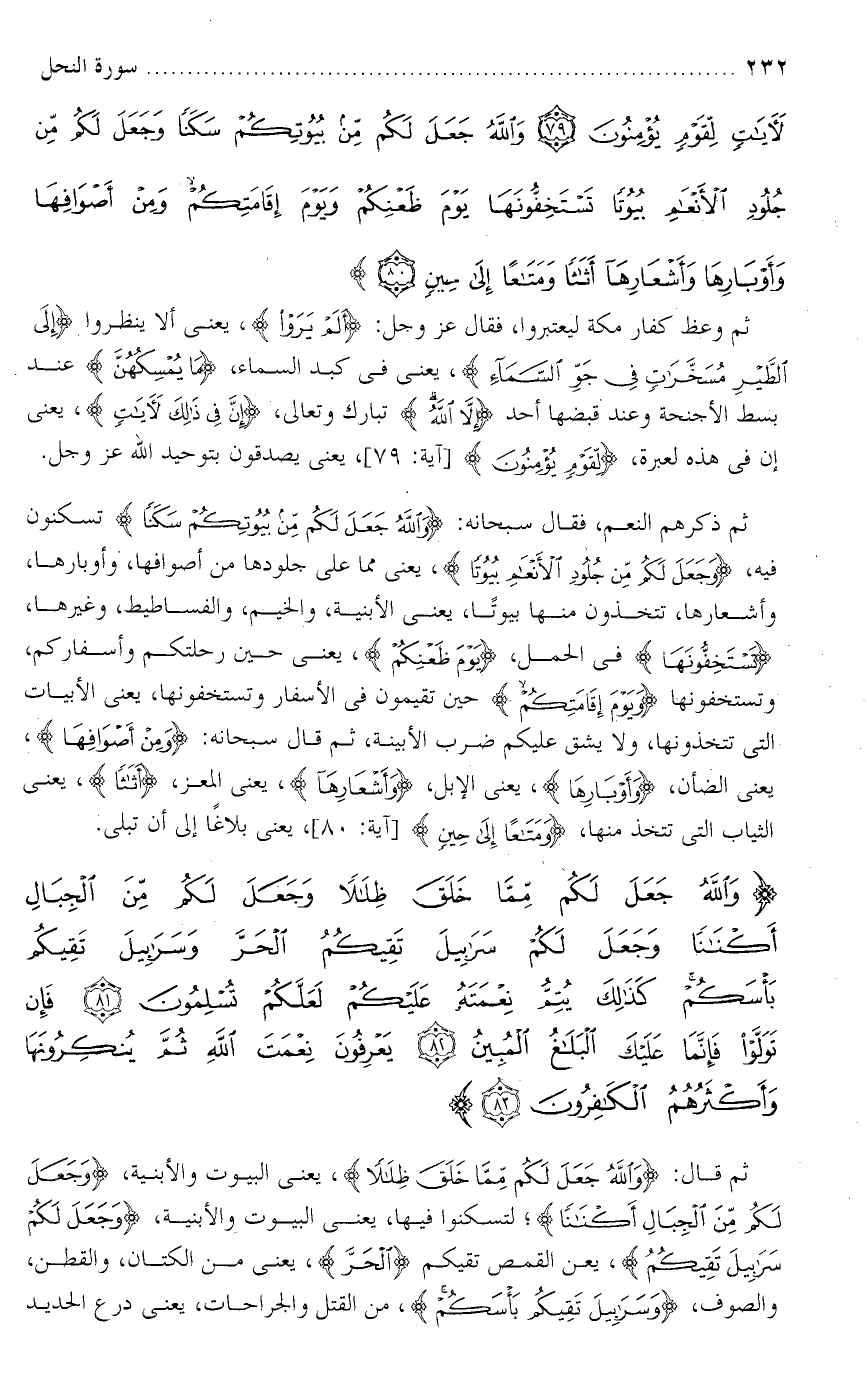 ٢٣٢ ........................................ سورة النحل
لَآيَاتٍ لِّقَوْمٍ يُؤْمِنُونَ ﴿٧٩﴾ وَاللَّهُ جَعَلَ لَكُم مِّنۢ بُيُوتِكُمْ سَكَنًا وَجَعَلَ لَكُم مِّن
جُلُودِ الْأَنْعَامِ بُيُوتًا تَسْتَخِفُّونَهَا يَوْمَ ظَعْنِكُمْ وَيَوْمَ إِقَامَتِكُمْ ۙ وَمِنْ أَصْوَافِهَا
وَأَوْبَارِهَا وَأَشْعَارِهَا أَثَاثًا وَمَتَاعًا إِلَىٰ حِينٍ ﴿٨٠﴾ ﴾
ثم وعظ كفار مكة ليعتبروا، فقال عز وجل: ﴿أَلَمْ يَرَوْا ﴾ ، يعنى ألا ينظروا ﴿إِلَى
الطَّيْرِ مُسَخَّرَاتٍ فِي جَوِّ السَّمَاءِ ﴾ ، يعنى فى كبد السماء، ﴿مَا يُمْسِكُهُنَّ ﴾ عند
بسط الأجنحة وعند قبضها أحد ﴿إِلَّا اللَّهُ ۗ ﴾ تبارك وتعالى، ﴿إِنَّ فِي ذَٰلِكَ لَآيَاتٍ ﴾ ، يعنى
إن فى هذه لعبرة، ﴿لِّقَوْمٍ يُؤْمِنُونَ ﴾ [آية: ٧٩]، يعنى يصدقون بتوحيد الله عز وجل.
ثم ذكرهم النعم، فقال سبحانه: ﴿وَاللَّهُ جَعَلَ لَكُم مِّنۢ بُيُوتِكُمْ سَكَنًا ﴾ تسكنون
فيه، ﴿وَجَعَلَ لَكُم مِّن جُلُودِ الْأَنْعَامِ بُيُوتًا ﴾ ، يعنى مما على جلودها من أصوافها، وأوبارها،
وأشعارها، تتخذون منها بيوتًا، يعنى الأبنية، والخيم، والفساطيط، وغيرها،
﴿تَسْتَخِفُّونَهَا ﴾ فى الحمل، ﴿يَوْمَ ظَعْنِكُمْ ﴾ ، يعنى حين رحلتكم وأسفاركم،
وتستخفونها ﴿وَيَوْمَ إِقَامَتِكُمْ ۙ ﴾ حين تقيمون فى الأسفار وتستخفونها، يعنى الأبيات
التى تتخذونها، ولا يشق عليكم ضرب الأبينة، ثم قال سبحانه: ﴿وَمِنْ أَصْوَافِهَا ﴾ ،
يعنى الضأن، ﴿وَأَوْبَارِهَا ﴾ ، يعنى الإبل، ﴿وَأَشْعَارِهَا ﴾ ، يعنى المعز، ﴿أَثَاثًا ﴾ ، يعنى
الثياب التى تتخذ منها، ﴿وَمَتَاعًا إِلَىٰ حِينٍ ﴾ [آية: ٨٠]، يعنى بلاغًا إلى أن تبلى.
﴿ وَاللَّهُ جَعَلَ لَكُم مِّمَّا خَلَقَ ظِلَالًا وَجَعَلَ لَكُم مِّنَ الْجِبَالِ
أَكْنَانًا وَجَعَلَ لَكُمْ سَرَابِيلَ تَقِيكُمُ الْحَرَّ وَسَرَابِيلَ تَقِيكُم
بَأْسَكُمْ ۚ كَذَٰلِكَ يُتِمُّ نِعْمَتَهُ عَلَيْكُمْ لَعَلَّكُمْ تُسْلِمُونَ ﴿٨١﴾ فَإِن
تَوَلَّوْا فَإِنَّمَا عَلَيْكَ الْبَلَاغُ الْمُبِينُ ﴿٨٢﴾ يَعْرِفُونَ نِعْمَتَ اللَّهِ ثُمَّ يُنكِرُونَهَا
وَأَكْثَرُهُمُ الْكَافِرُونَ ﴿٨٣﴾ ﴾
ثم قال: ﴿وَاللَّهُ جَعَلَ لَكُم مِّمَّا خَلَقَ ظِلَالًا ﴾ ، يعنى البيوت والأبنية، ﴿وَجَعَلَ
لَكُم مِّنَ الْجِبَالِ أَكْنَانًا ﴾ ؛ لتسكنوا فيها، يعنى البيوت والأبنية، ﴿وَجَعَلَ لَكُمْ
سَرَابِيلَ تَقِيكُمُ ﴾ ، يعن القمص تقيكم ﴿الْحَرَّ ﴾ ، يعنى من الكتان، والقطن،
والصوف، ﴿وَسَرَابِيلَ تَقِيكُم بَأْسَكُمْ ۚ ﴾ ، من القتل والجراحات، يعنى درع الحديد